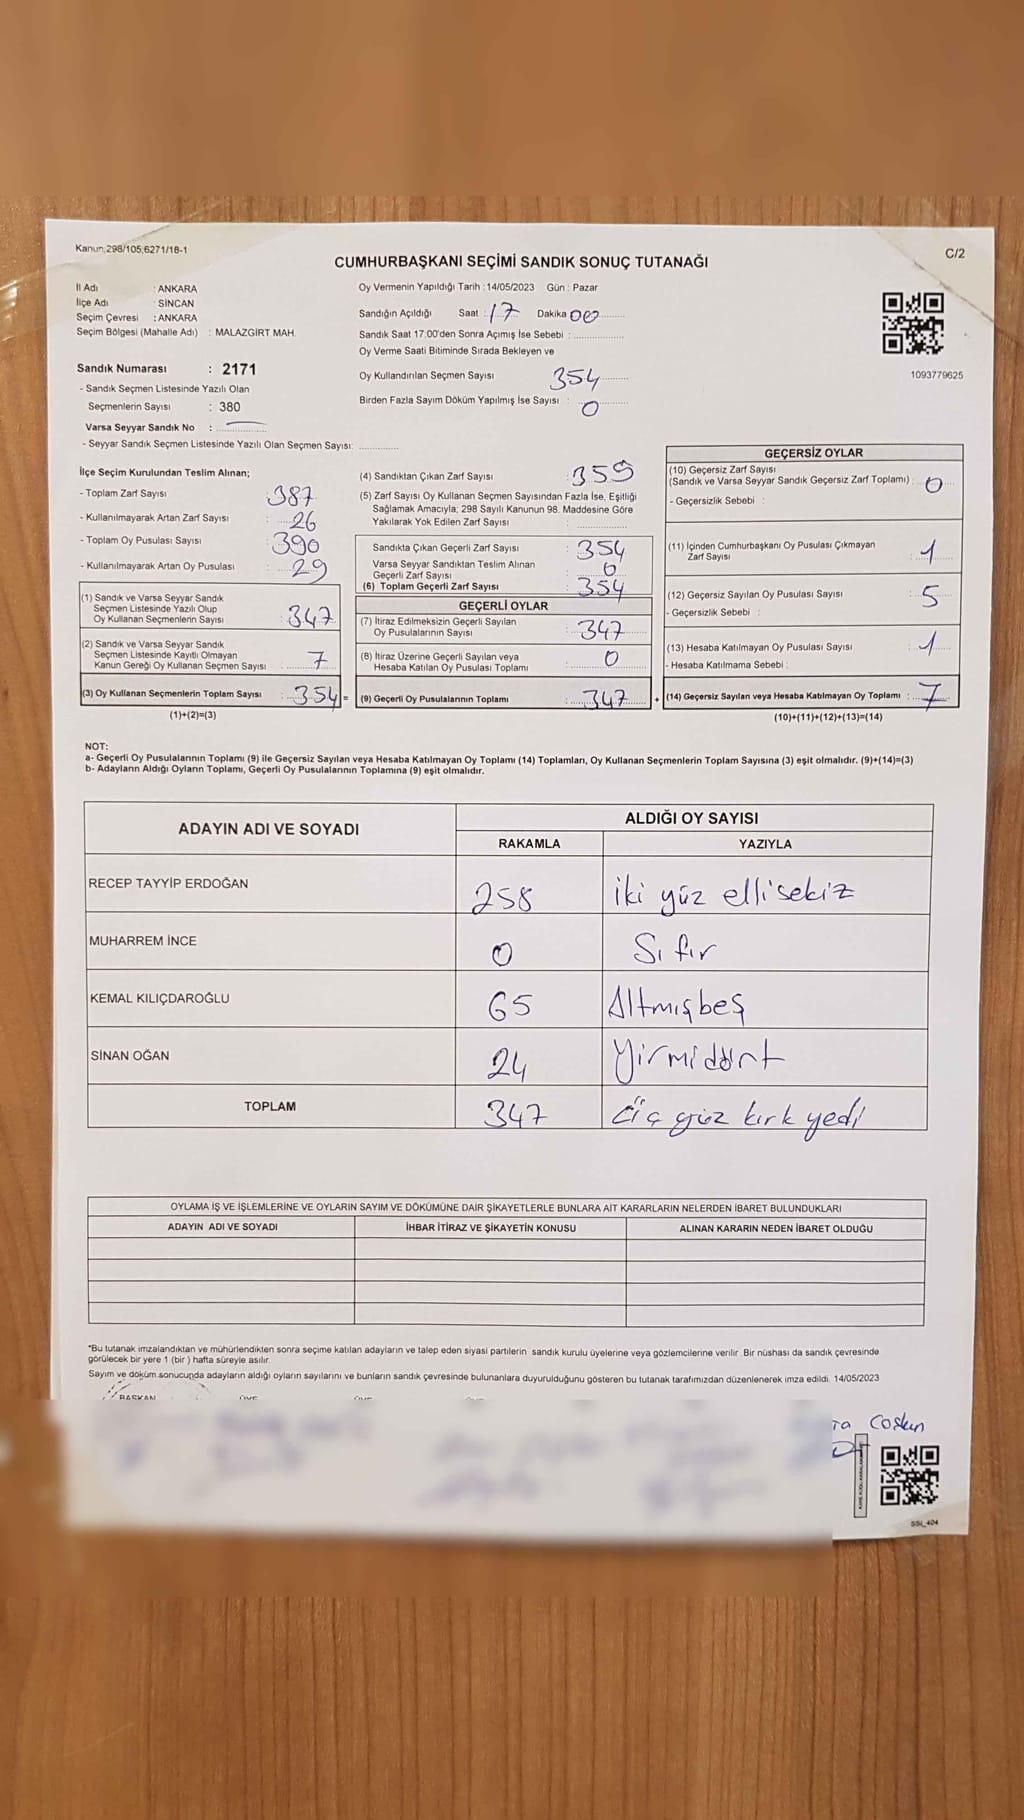 Kanun;298/105;6271/18-1
C/2
CUMHURBAŞKANI SEÇİMİ SANDIK SONUÇ TUTANAĞI
İl Adı : ANKARA
İlçe Adı : SİNCAN
Seçim Çevresi : ANKARA
Seçim Bölgesi (Mahalle Adı) : MALAZGİRT MAH.
Sandık Numarası : 2171
- Sandık Seçmen Listesinde Yazılı Olan
Seçmenlerin Sayısı : 380
Varsa Seyyar Sandık No :
- Seyyar Sandık Seçmen Listesinde Yazılı Olan Seçmen Sayısı:
Oy Vermenin Yapıldığı Tarih : 14/05/2023 Gün : Pazar
Sandığın Açıldığı Saat : 17 Dakika 00
Sandık Saat 17.00'den Sonra Açımış İse Sebebi :
Oy Verme Saati Bitiminde Sırada Bekleyen ve
Oy Kullandırılan Seçmen Sayısı 354
Birden Fazla Sayım Döküm Yapılmış İse Sayısı : 0
1093779625
İlçe Seçim Kurulundan Teslim Alınan;
- Toplam Zarf Sayısı : 387
- Kullanılmayarak Artan Zarf Sayısı : 26
- Toplam Oy Pusulası Sayısı : 390
- Kullanılmayarak Artan Oy Pusulası : 29
(1) Sandık ve Varsa Seyyar Sandık
Seçmen Listesinde Yazılı Olup
Oy Kullanan Seçmenlerin Sayısı : 347
(2) Sandık ve Varsa Seyyar Sandık
Seçmen Listesinde Kayıtlı Olmayan
Kanun Gereği Oy Kullanan Seçmen Sayısı : 7
(3) Oy Kullanan Seçmenlerin Toplam Sayısı : 354 =
(1)+(2)=(3)
(4) Sandıktan Çıkan Zarf Sayısı : 359
(5) Zarf Sayısı Oy Kullanan Seçmen Sayısından Fazla İse, Eşitliği
Sağlamak Amacıyla; 298 Sayılı Kanunun 98. Maddesine Göre
Yakılarak Yok Edilen Zarf Sayısı :
Sandıkta Çıkan Geçerli Zarf Sayısı : 354
Varsa Seyyar Sandıktan Teslim Alınan
Geçerli Zarf Sayısı : 0
(6) Toplam Geçerli Zarf Sayısı : 354
GEÇERLİ OYLAR
(7) İtiraz Edilmeksizin Geçerli Sayılan
Oy Pusulalarının Sayısı : 347
(8) İtiraz Üzerine Geçerli Sayılan veya
Hesaba Katılan Oy Pusulası Toplamı : 0
(9) Geçerli Oy Pusulalarının Toplamı : 347 +
GEÇERSİZ OYLAR
(10) Geçersiz Zarf Sayısı
(Sandık ve Varsa Seyyar Sandık Geçersiz Zarf Toplamı) : 0
- Geçersizlik Sebebi :
(11) İçinden Cumhurbaşkanı Oy Pusulası Çıkmayan
Zarf Sayısı : 1
(12) Geçersiz Sayılan Oy Pusulası Sayısı : 5
- Geçersizlik Sebebi :
(13) Hesaba Katılmayan Oy Pusulası Sayısı : 1
- Hesaba Katılmama Sebebi :
(14) Geçersiz Sayılan veya Hesaba Katılmayan Oy Toplamı : 7
(10)+(11)+(12)+(13)=(14)
NOT:
a- Geçerli Oy Pusulalarının Toplamı (9) ile Geçersiz Sayılan veya Hesaba Katılmayan Oy Toplamı (14) Toplamları, Oy Kullanan Seçmenlerin Toplam Sayısına (3) eşit olmalıdır. (9)+(14)=(3)
b- Adayların Aldığı Oyların Toplamı, Geçerli Oy Pusulalarının Toplamına (9) eşit olmalıdır.
ADAYIN ADI VE SOYADI
ALDIĞI OY SAYISI
RAKAMLA YAZIYLA
RECEP TAYYİP ERDOĞAN 258 iki yüz ellisekiz
MUHARREM İNCE 0 Sıfır
KEMAL KILIÇDAROĞLU 65 Altmışbeş
SİNAN OĞAN 24 Yirmidört
TOPLAM 347 üç yüz kırk yedi
OYLAMA İŞ VE İŞLEMLERİNE VE OYLARIN SAYIM VE DÖKÜMÜNE DAİR ŞİKAYETLERLE BUNLARA AİT KARARLARIN NELERDEN İBARET BULUNDUKLARI
ADAYIN ADI VE SOYADI İHBAR İTİRAZ VE ŞİKAYETİN KONUSU ALINAN KARARIN NEDEN İBARET OLDUĞU
*Bu tutanak imzalandıktan ve mühürlendikten sonra seçime katılan adayların ve talep eden siyasi partilerin sandık kurulu üyelerine veya gözlemcilerine verilir. Bir nüshası da sandık çevresinde
görülecek bir yere 1 (bir) hafta süreyle asılır.
Sayım ve döküm sonucunda adayların aldığı oyların sayılarını ve bunların sandık çevresinde bulunanlara duyurulduğunu gösteren bu tutanak tarafımızdan düzenlenerek imza edildi. 14/05/2023
BAŞKAN
Coskun
SSI_404